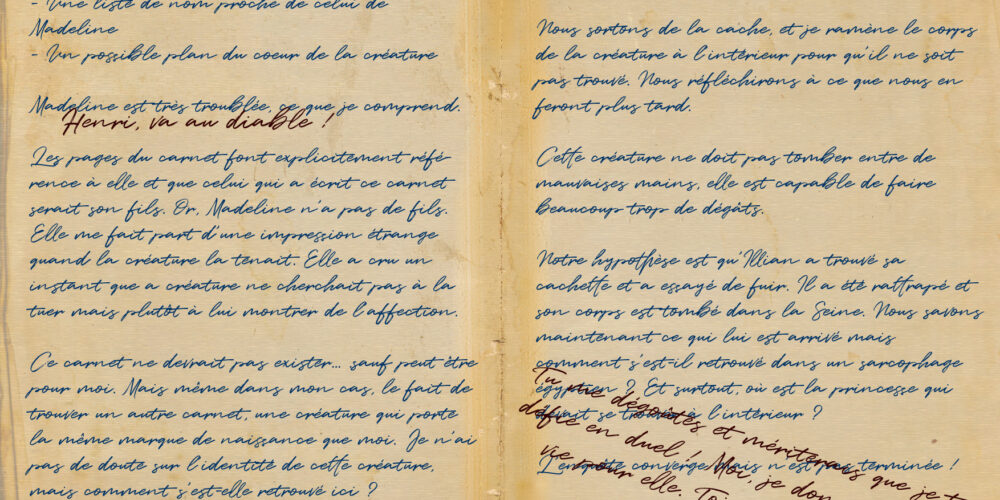 - Une liste de nom proche de celui de
Madeline
- Un possible plan du coeur de la créature
Madeline est très troublée, ce que je comprend.
Henri, va au diable !
Les pages du carnet font explicitement réfé-
rence à elle et que celui qui a écrit ce carnet
serait son fils. Or, Madeline n'a pas de fils.
Elle me fait part d'une impression étrange
quand la créature la tenait. Elle a cru un
instant que a créature ne cherchait pas à la
tuer mais plutôt à lui montrer de l'affection.
Ce carnet ne devrait pas exister... sauf peut être
pour moi. Mais même dans mon cas, le fait de
trouver un autre carnet, une créature qui porte
la même marque de naissance que moi. Je n'ai
pas de doute sur l'identité de cette créature,
mais comment s'est-elle retrouvé ici ?
Nous sortons de la cache, et je ramène le corps
de la créature à l'intérieur pour qu'il ne soit
pas trouvé. Nous réfléchirons à ce que nous en
feront plus tard.
Cette créature ne doit pas tomber entre de
mauvaises mains, elle est capable de faire
beaucoup trop de dégâts.
Notre hypothèse est qu'Illian a trouvé sa
cachette et a essayé de fuir. Il a été rattrapé et
son corps est tombé dans la Seine. Nous savons
maintenant ce qui lui est arrivé mais
comment s'est-il retrouvé dans un sarcophage
égyptien ? Et surtout, où est la princesse qui
devait se trouver à l'intérieur ?
Tu me dégoûtes et mériterais que je t
défie en duel ! Moi, je don
vie pour elle. Toi
L'enquête converge mais n'est pas terminée !